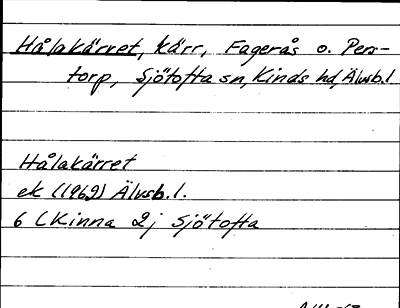 Hålakärret, kärr, Fagerås o. Pers-
torp, Sjötofta sn, Kinds hd, Älvsb.l
Hålakärret
ek (1969) Älvsb.l.
6 C Kinna 2j Sjötofta